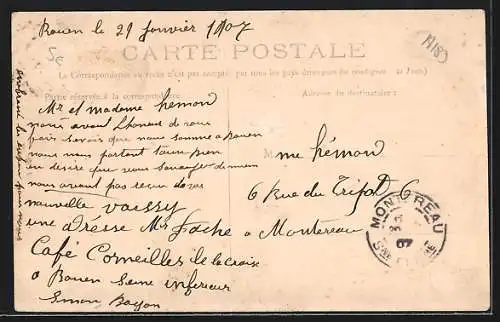 Rouen le 21 Janvier 1907
CARTE POSTALE
La Correspondance au recto n'est pas acceptée par tous les pays étrangers
Partie réservée à la correspondance
Adresse du destinataire
Mr et madame hémond
nous avons l'honneur de vous
faire savoir que nous somme a rouen
nous nous portont taure bien
en desire que vous
nous avont pas reçue de vos
nouvelle voissy
une adresse Mr Fache
Café Corneilles de la croix
a Rouen Seine inferieur
Simon
me hémond
6 Rue du Tripot 6
a Montereau
MONTEREAU